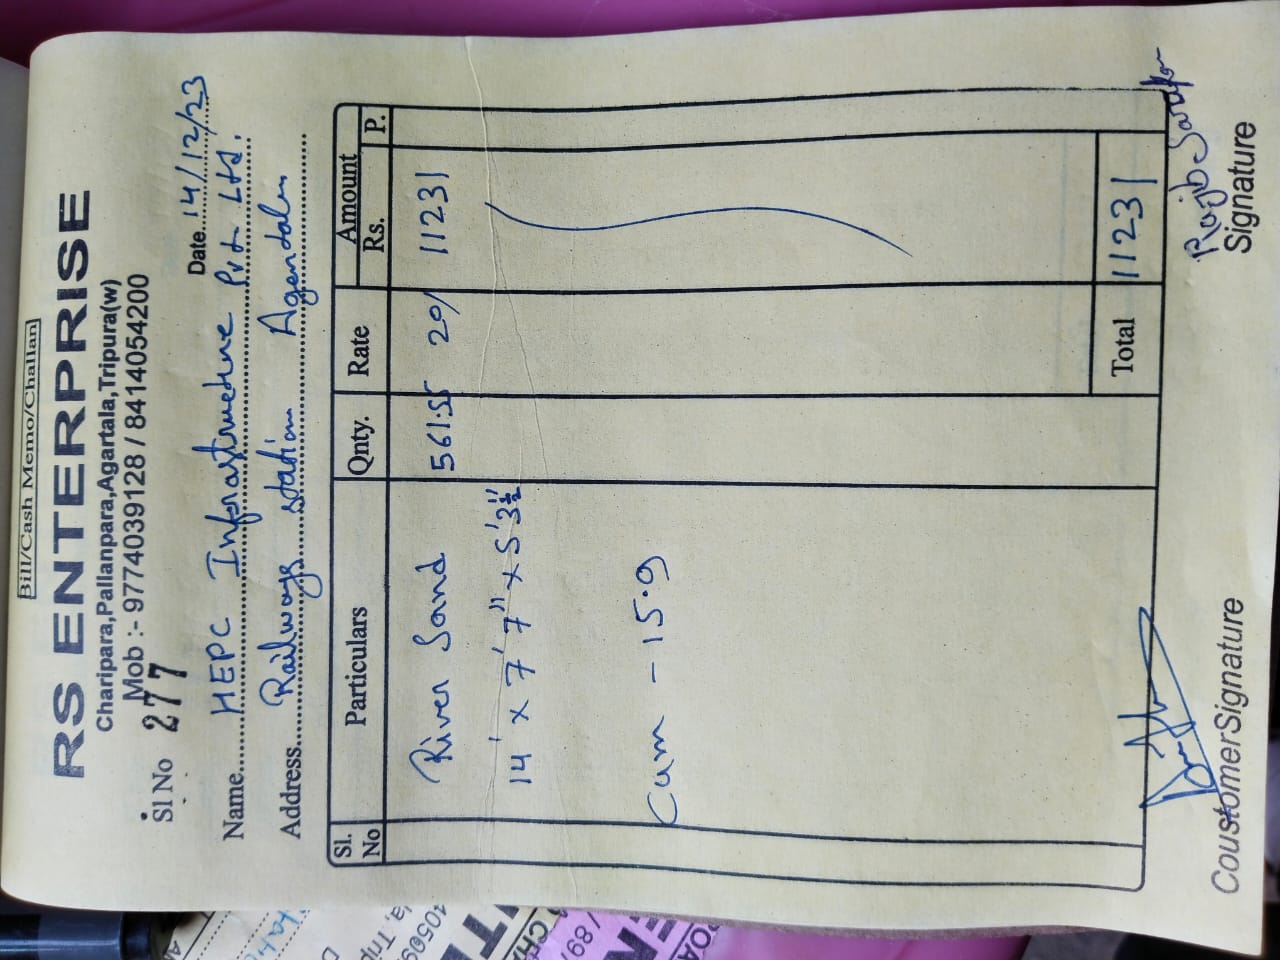 Bill/Cash Memo/Challan
RS ENTERPRISE
Charipara,Pallanpara,Agartala,Tripura(w)
Mob :- 9774039128 / 8414054200
Sl No 277 Date 14/12/23
Name HEPC Infrastructure Pvt Ltd.
Address Railways station Agartala
Sl. No Particulars Qnty. Rate Amount Rs. P.
River Sand 561.55 20/ 11231
14' x 7'7" x 5'3½"
Cum - 15.9
Total 11231
Rajib Sarkar
CoustomerSignature Signature